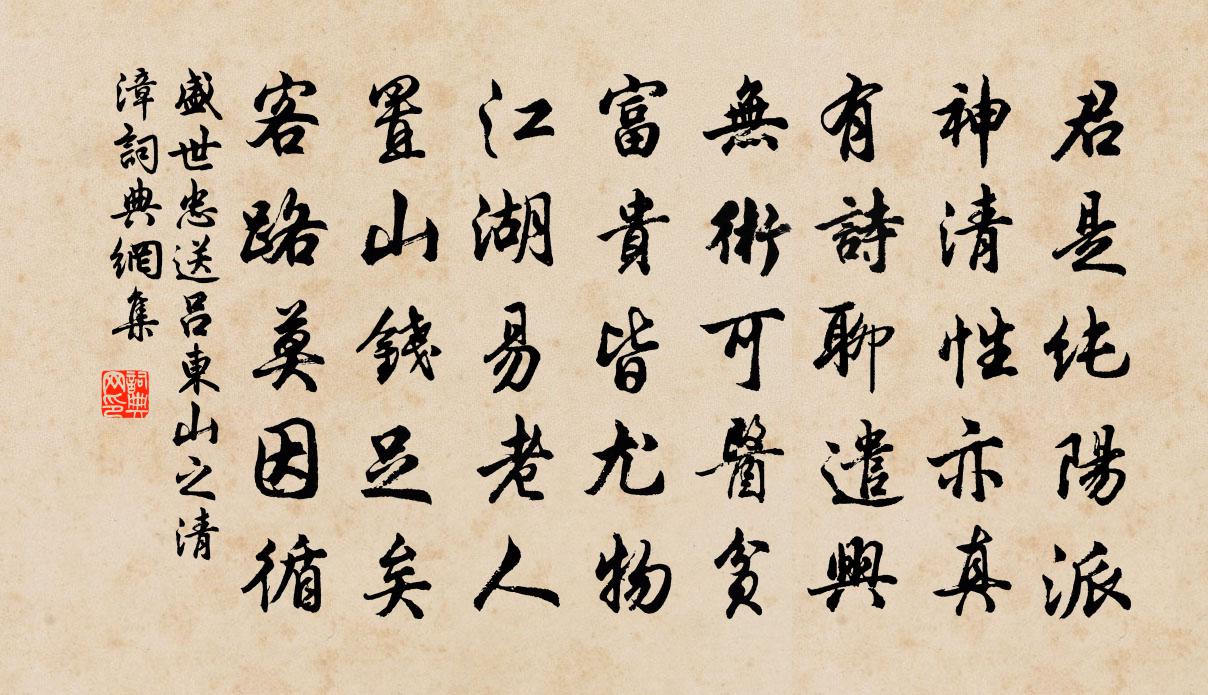 君是純陽派
神清性亦真
有詩聊遣興
無術可醫貧
富貴皆尤物
江湖易老人
置山錢足矣
客路莫因循
盛世忠送呂東山之清
漳詞典網集
詞典
网印